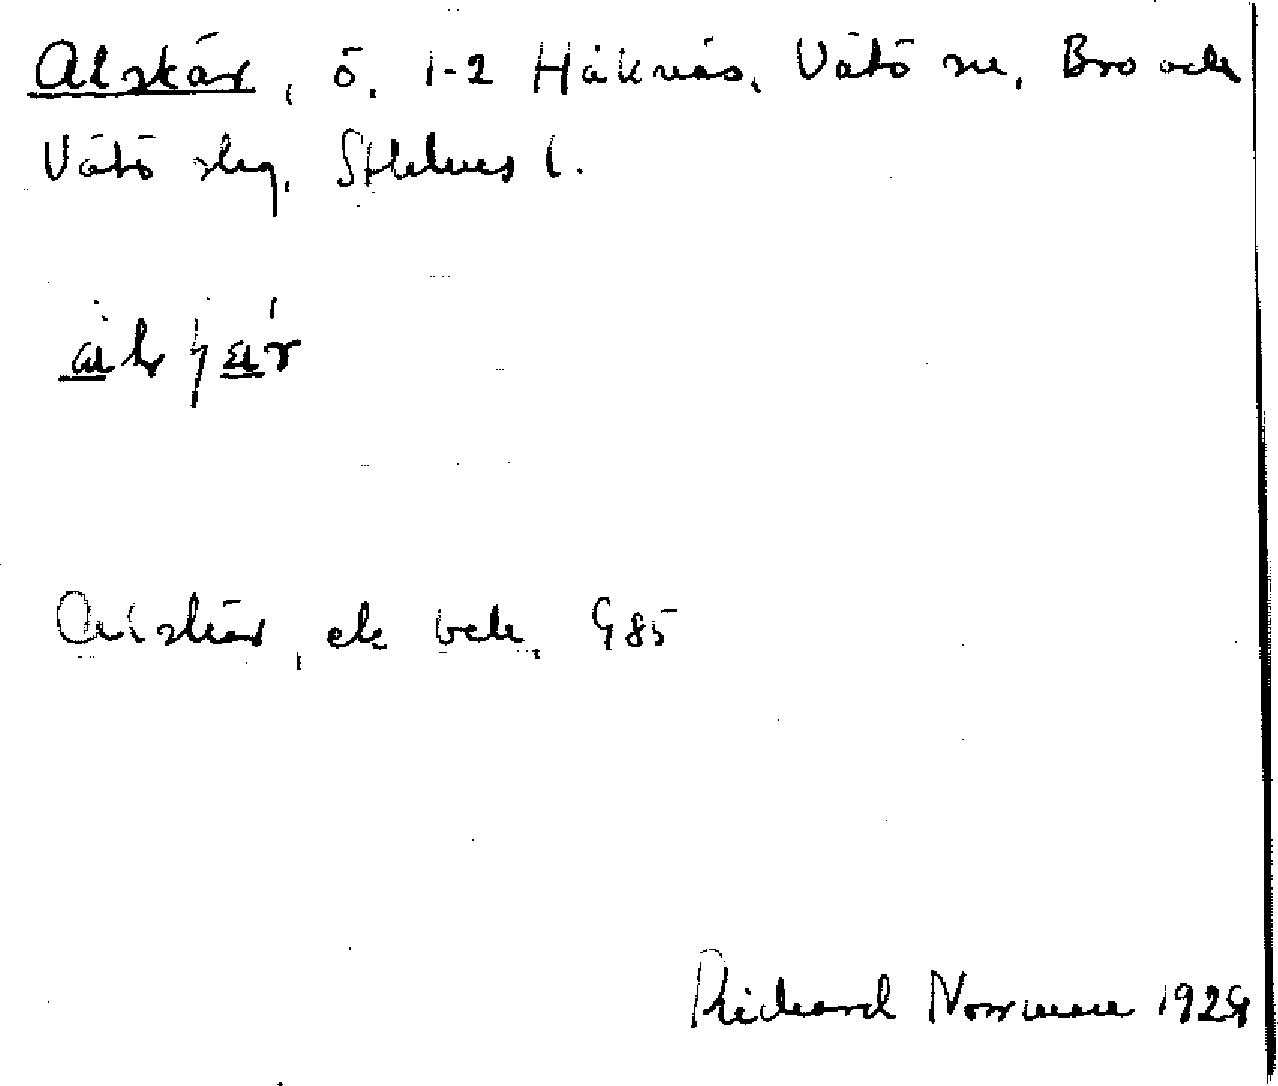 Alskär, ö, 1-2 Håknäs, Vätö sn, Bro och
Vätö slg, Sthlms l.
Alskär, ek bek, G 85
Richard Norrman 1929